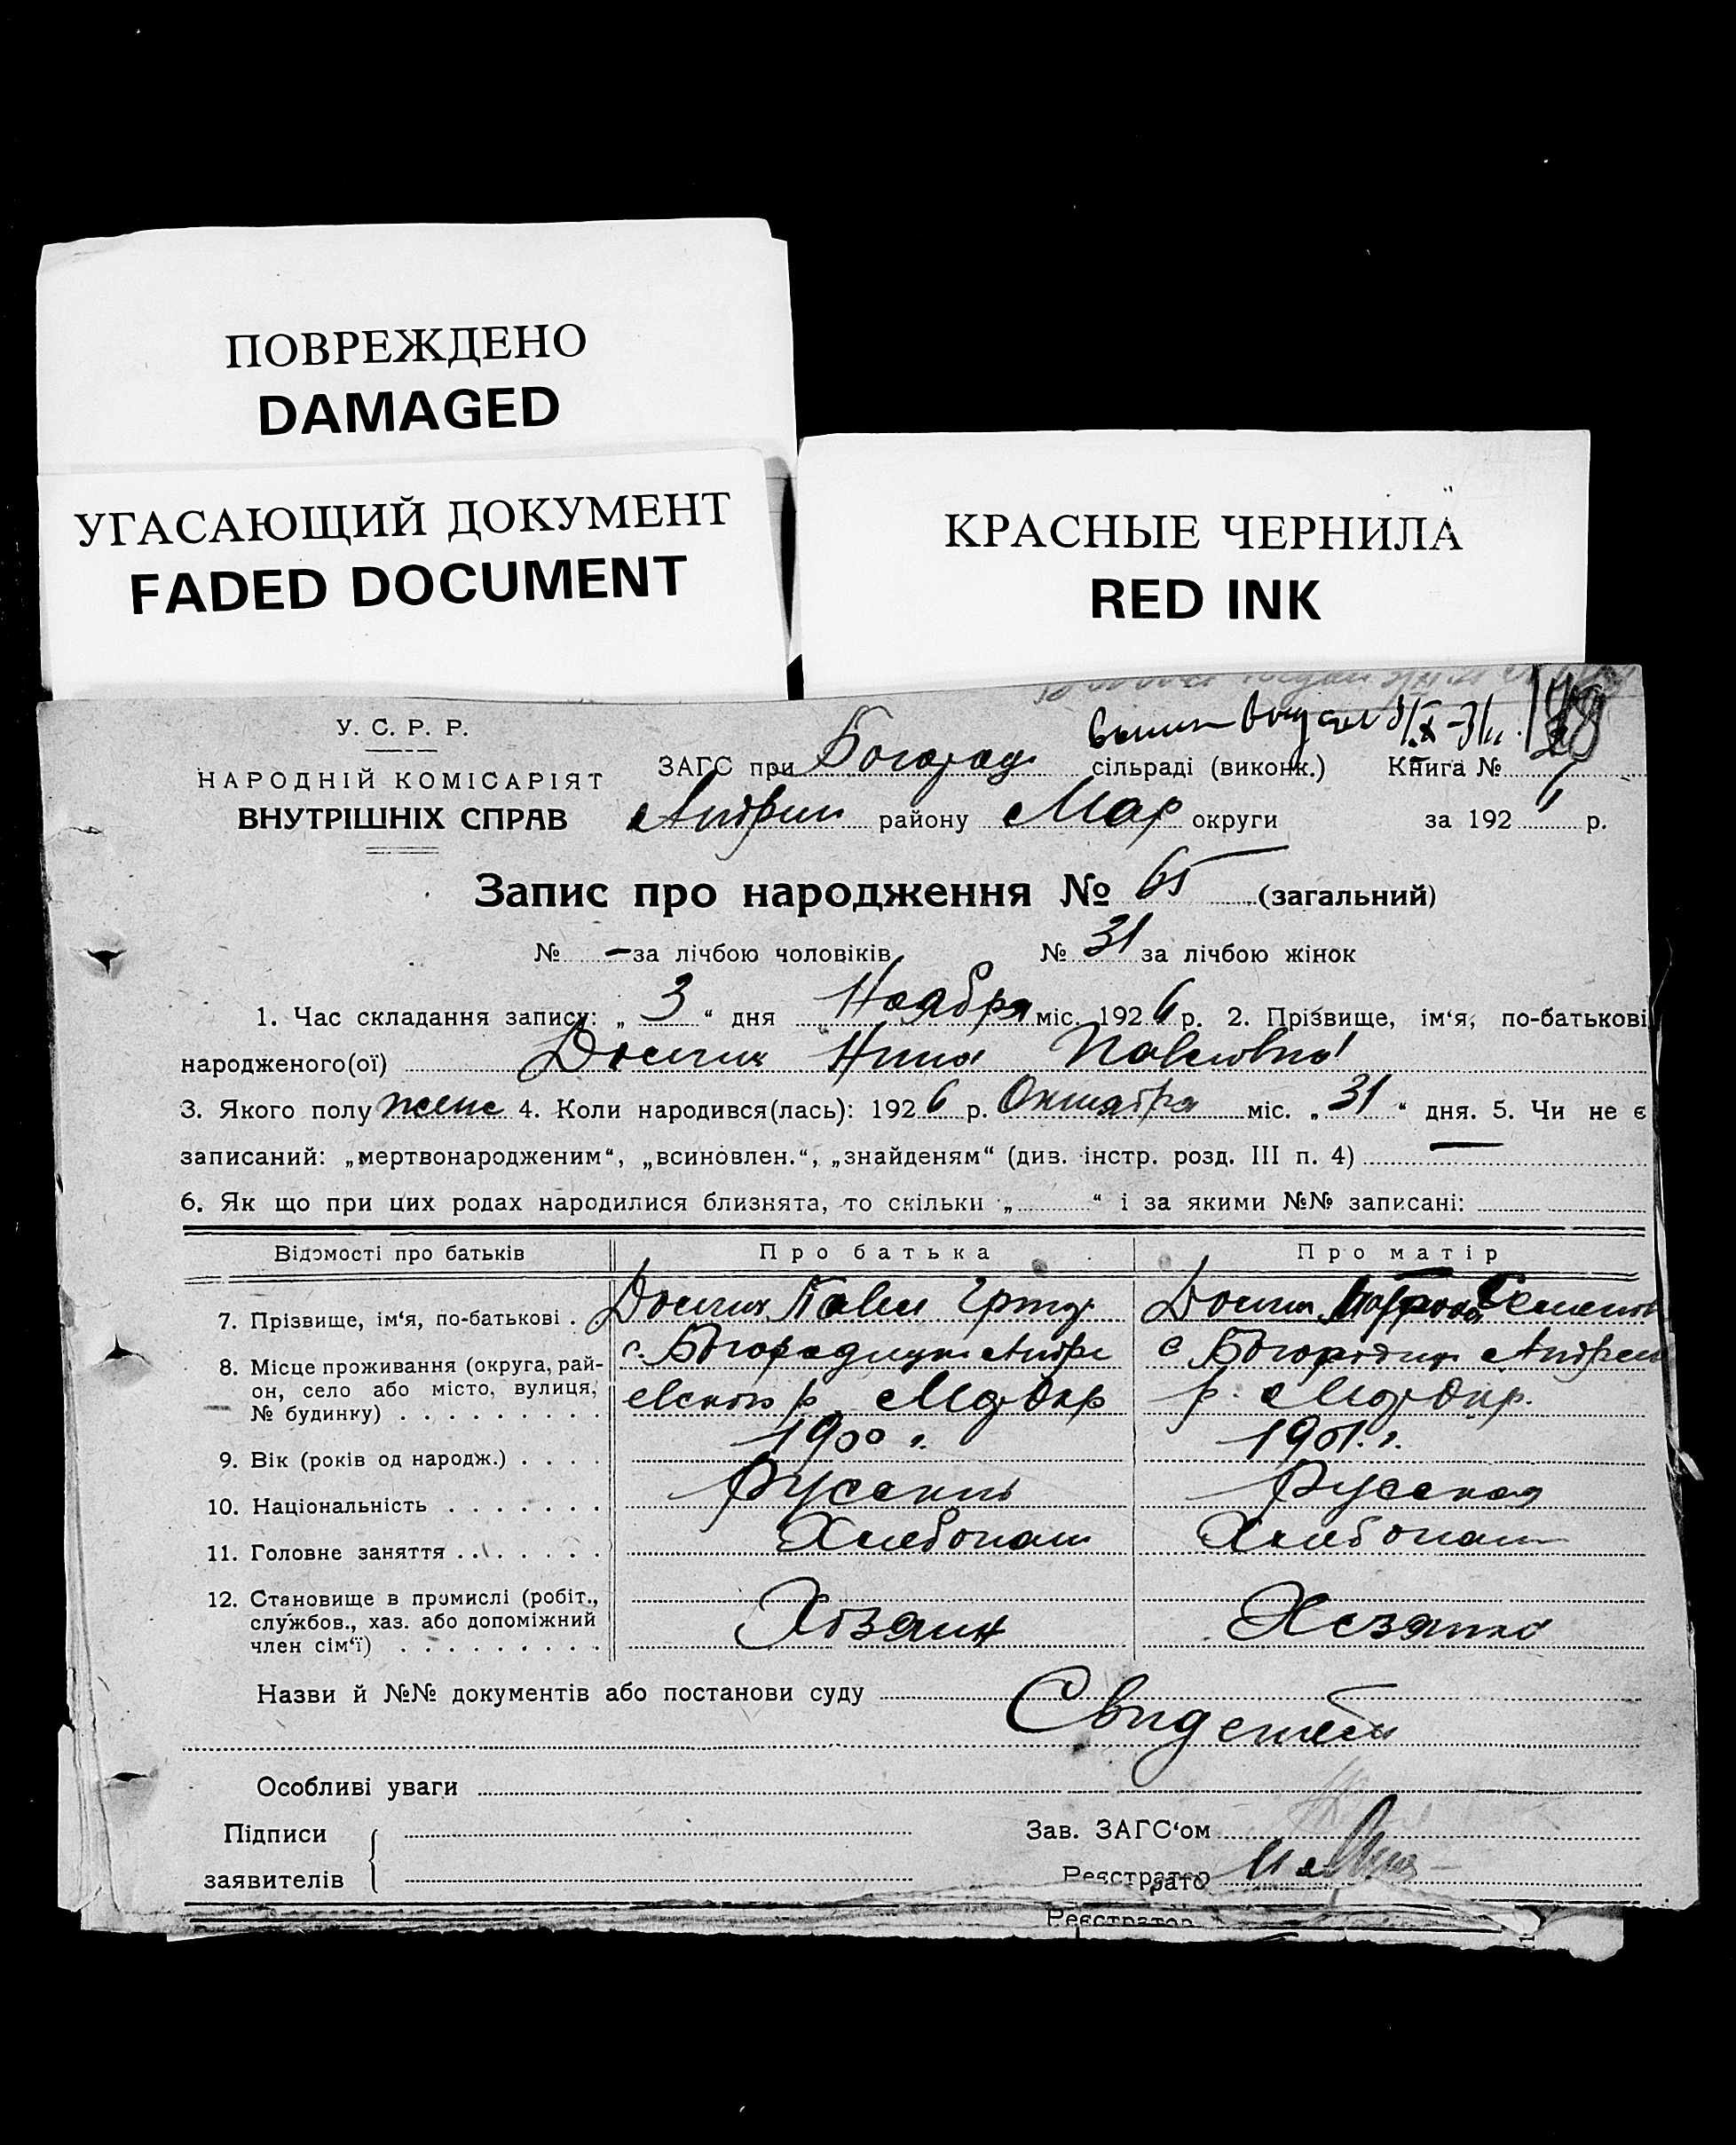 ПОВРЕЖДЕНО
DAMAGED
УГАСАЮЩИЙ ДОКУМЕНТ
FADED DOCUMENT
КРАСНЫЕ ЧЕРНИЛА
RED INK
У. С. Р. Р.
НАРОДНІЙ КОМІСАРІЯТ
ВНУТРІШНІХ СПРАВ
ЗАГС при Богород сільраді (виконк.) Книга №
района Мар округи за 1926 р.
Запис про народження № 65 (загальний)
№ — за лічбою чоловіків № 31 за лічбою жінок
1. Час складання запису: „ 3 “ дня Ноября міс. 1926 р. 2. Прізвище, ім'я, по-батькові
народженого(ої) Нина Павловна
3. Якого полу женс 4. Коли народився(лась): 1926 р. Октября міс. „ 31 “ дня. 5. Чи не є
записаний: „мертвонародженим“, „всиновлен.“, „знайденям“ (див. інстр. розд. III п. 4) —
6. Як що при цих родах народилися близнята, то скільки „ “ і за якими №№ записані:
Відомості про батьків Про батька Про матір
7. Прізвище, ім'я, по-батькові . Павел
8. Місце проживання (округа, рай-
он, село або місто, вулиця,
№ будинку) . . . . . . . . .
с. Богородицк Андре с Богородицк Андреев
евского р. Мар Окр р. Мар Окр.
9. Вік (років од народж.) . . . . 1900 г. 1901. г.
10. Національність . . . . . . . Русский Русская
11. Головне заняття . . . . . . . Хлебопаш Хлебопаш
12. Становище в промислі (робіт.,
службов., хаз. або допоміжний
член сім'ї) . . . . . . . . .
Хозяин Хозяйка
Назви й №№ документів або постанови суду
Свидетели
Особливі уваги
Підписи
заявителів
Зав. ЗАГС'ом
Реєстратор
рато
Реєстратор